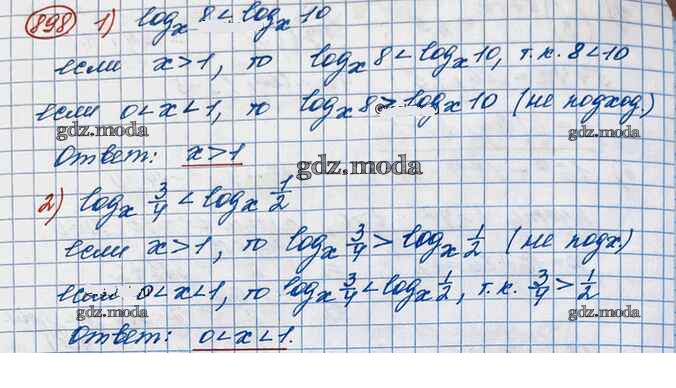 898 1) log_x 8 < log_x 10
если x>1, то log_x 8 < log_x 10, т.к. 8<10
если 0<x<1, то log_x 8 > log_x 10 (не подход.)
gdz.moda gdz.moda gdz.moda
Ответ: x>1
gdz.moda
2) log_x 3/4 < log_x 1/2
если x>1, то log_x 3/4 > log_x 1/2 (не подх)
если 0<x<1, то log_x 3/4 < log_x 1/2, т.к. 3/4 > 1/2
gdz.moda gdz.moda gdz.moda
Ответ: 0<x<1.